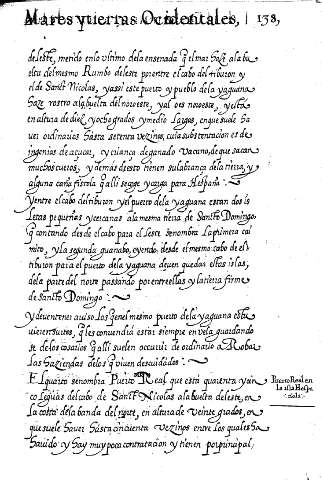 Mares y tierras Ocidentales, 138,
del este, metido en lo ultimo de la ensenada q̃ el mar haze a la bu
elta del mesmo Rumbo del este por entre el cabo del tiburon y
el de Sanct Nicolas, y assi este puerto y pueblo de la yaguana
haze rostro a la buelta del noroeste, y al oes noroeste, y esta
en altura de diez y ocho grados y medio Largos, en que suele ha
uer ordinarios hasta setenta vezinos, cuia substentacion es de
ingenios de açucar, y criança de ganado Vacuno, de que sacan
muchos cueros, y demas desto tienen su labrança de la tierra, y
alguna caña fistola q̃ alli se coge y carga para Hespaña:~
Y entre el cabo del tiburon y el puerto de la yaguana estan dos is
letas pequeñas y cercanas a la mesma tierra de Sancto Domingo,
q̃ contando desde el cabo para el Leste se nombra La primera cai
mito, y La segunda guanabo, e yendo desde el mesmo cabo de el ti
buron para el puerto de la yaguana deuen quedar estas islas,
de la parte del norte passando por entre ellas y la tierra firme
de Sancto Domingo:~
Y deuen tener auiso Los que en el mesmo puerto de la yaguana estu
uieren surtos, q̃ les conuendra estar siempre en vela, guardando
se de los cosarios q̃ alli suelen occurrir de ordinario a Robar
las haziendas de los q̃ viuen descuidados:~
El quarto se nombra Puerto Real que esta quarenta y cin
co Leguas del cabo de Sanct Nicolas a la buelta del este, en
La costa de la banda del norte, en altura de veinte grados, en
que suele hauer hasta cincuenta vezinos entre los quales ha
hauido y hay muy poca contratacion y tienen por principal,
Puerto Real en
La isla Hespa
ñola